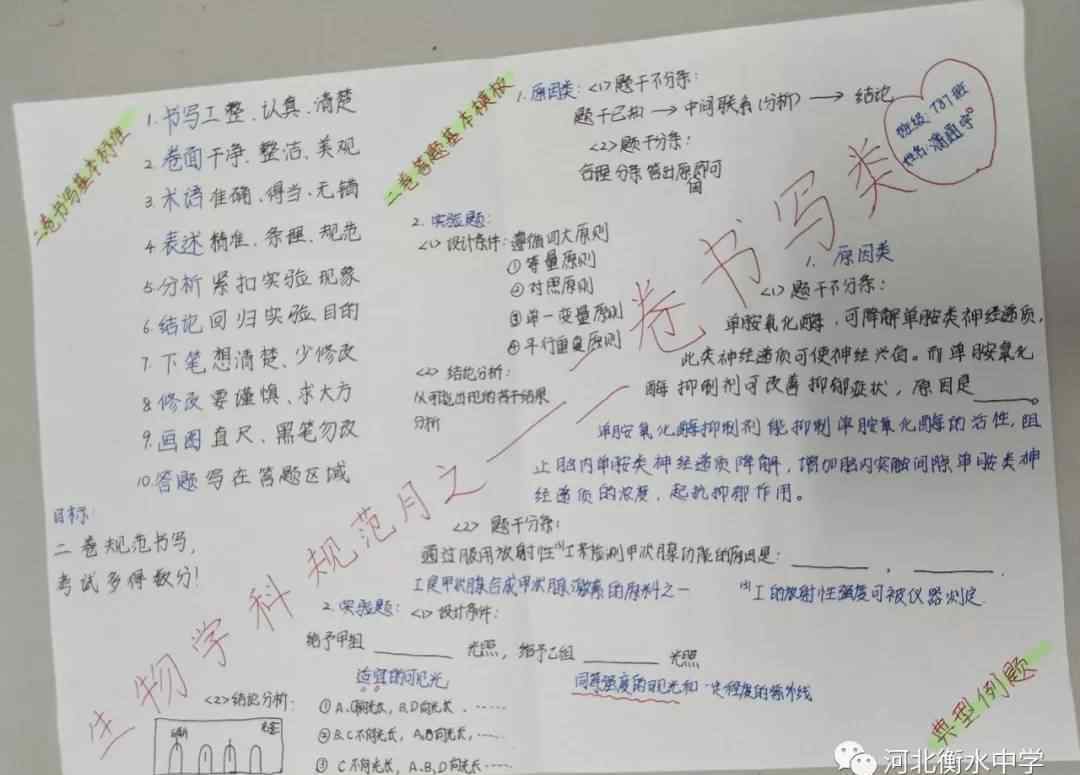 二卷书写基本标准
1. 书写工整、认真、清楚
2. 卷面干净、整洁、美观
3. 术语准确、得当、无错
4. 表述精准、条理、规范
5. 分析紧扣实验现象
6. 结论回归实验目的
7. 下笔想清楚、少修改
8. 修改要谨慎、求大方
9. 画图直尺、黑笔勿改
10. 答题写在答题区域
目标:
二卷规范书写,
考试多得数分!
二卷答题基本模板
1. 原因类: <1> 题干不分条:
题干已知 → 中间联系(分析) → 结论
<2> 题干分条:
合理分条答出原因即可
2. 实验题:
<1> 设计条件: 遵循四大原则
① 等量原则
② 对照原则
③ 单一变量原则
④ 平行重复原则
<2> 结论分析:
从可能出现的若干结果
分析
班级: 787班
姓名:
生物学科规范月之——二卷书写类
1. 原因类
<1> 题干不分条:
单胺氧化酶,可降解单胺类神经递质,
此类神经递质可使神经兴奋。而单胺氧化
酶抑制剂可改善抑郁症状,原因是______。
单胺氧化酶抑制剂能抑制单胺氧化酶的活性,阻
止脑内单胺类神经递质降解,增加脑内突触间隙单胺类神
经递质的浓度,起抗抑郁作用。
<2> 题干分条:
通过服用放射性¹³¹I来检测甲状腺功能的原因是: ______, ______.
I是甲状腺合成甲状腺激素的原料之一 ¹³¹I的放射性强度可被仪器测定
2. 实验题: <1> 设计条件:
给予甲组 ______ 光照, 给予乙组 ______ 光照
适宜的可见光 同等强度的可见光和一定程度的紫外线
<2> 结论分析:
① A、C向光长, B、D向光长……
② B、C不向光长, A、D向光长,……
③ C不向光长, A、B、D向光长……
典型例题
河北衡水中学